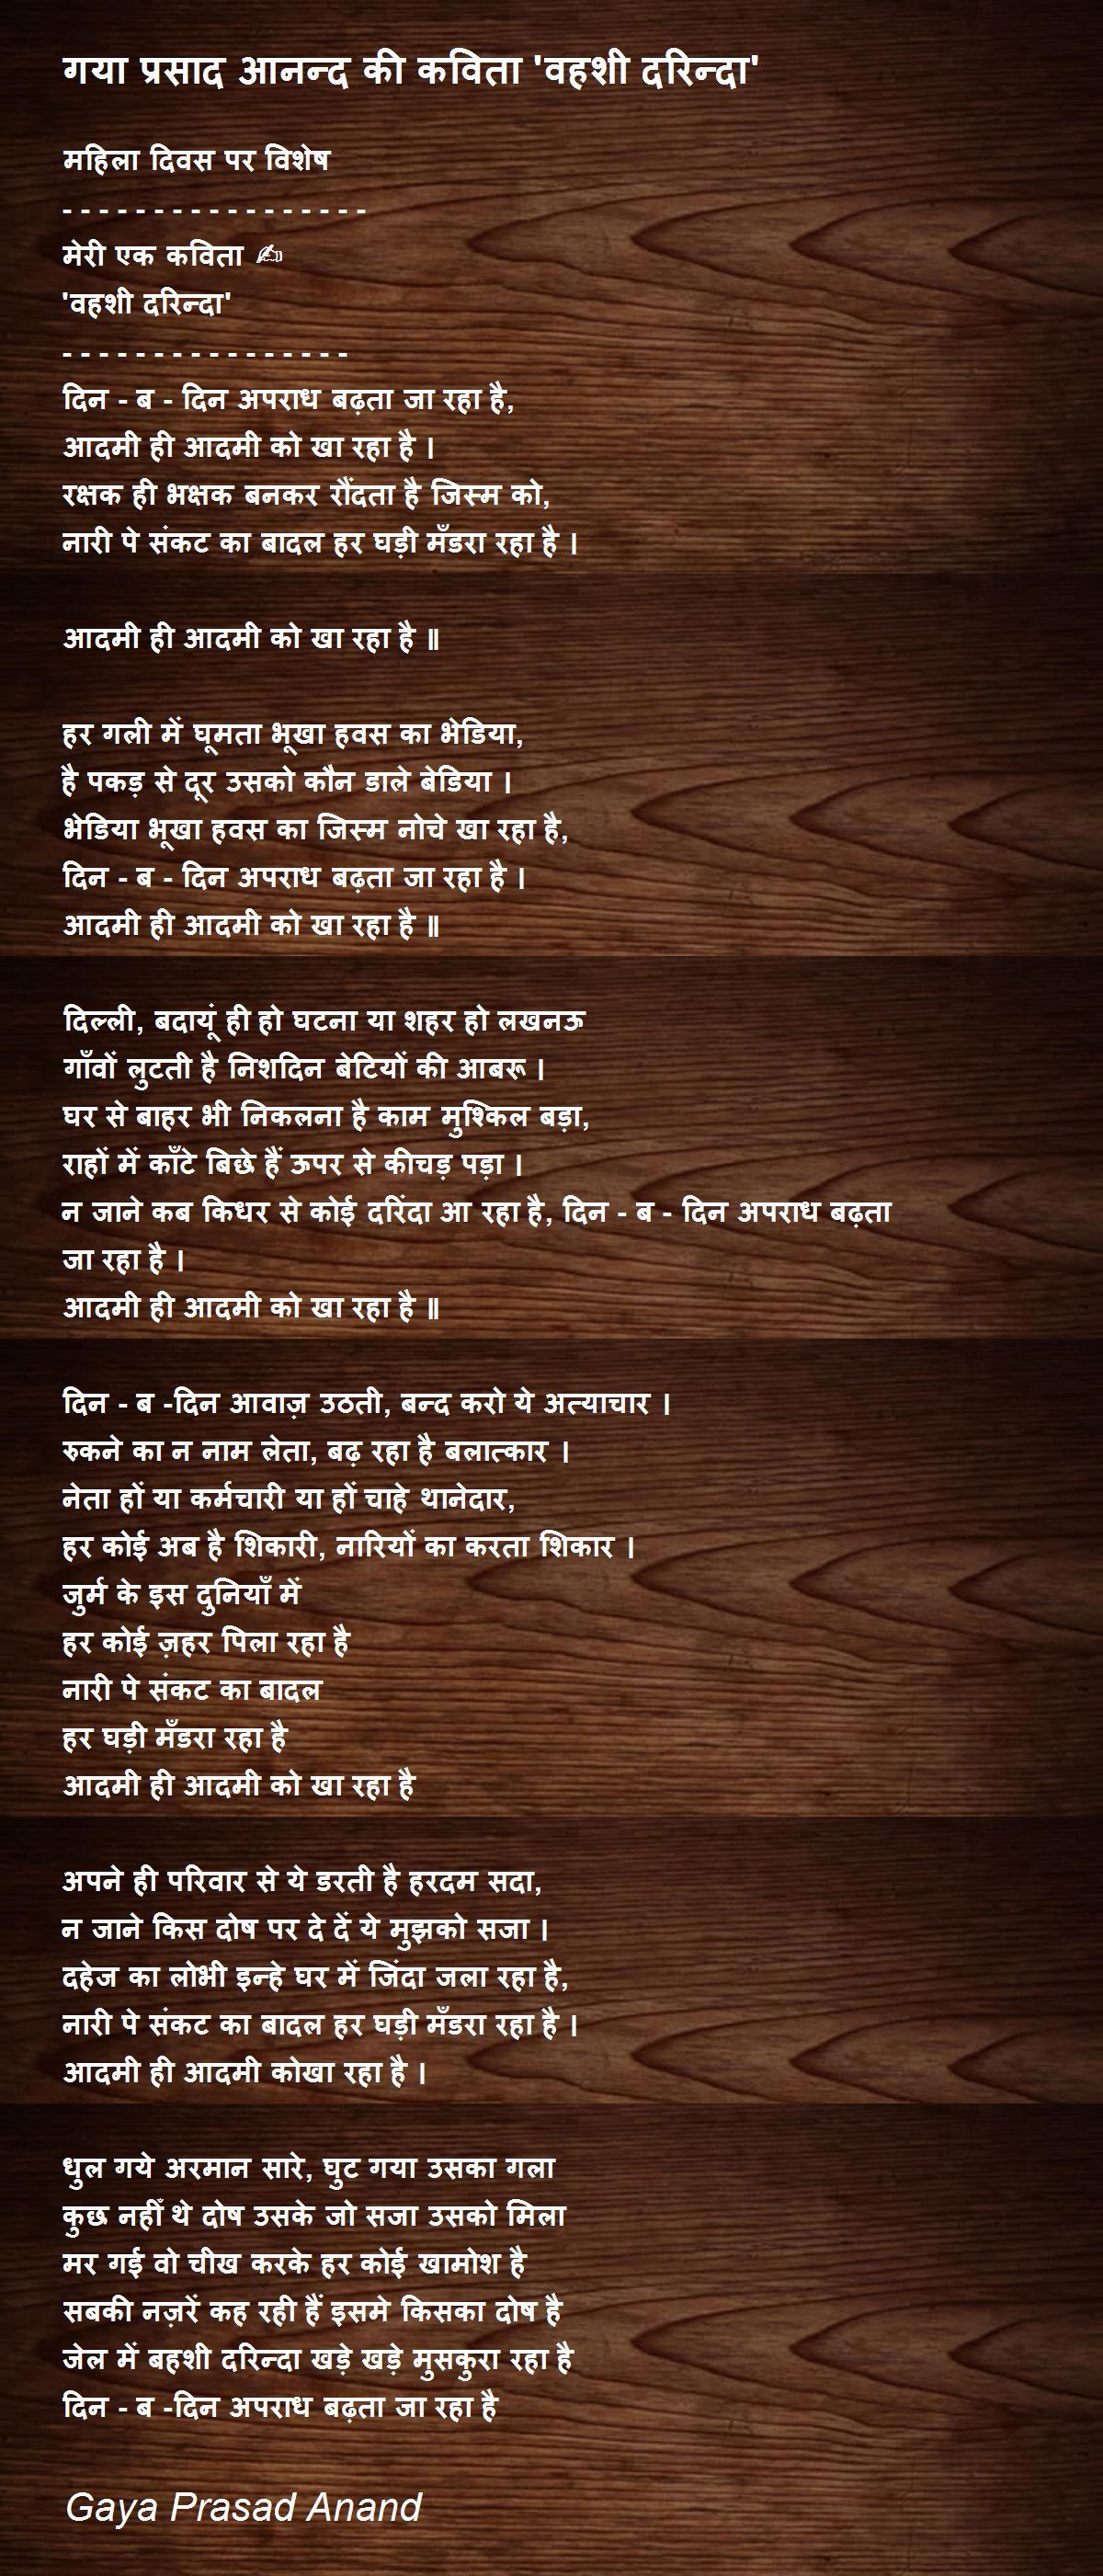 गया प्रसाद आनन्द की कविता 'वहशी दरिन्दा'
महिला दिवस पर विशेष
- - - - - - - - - - - - - - - - -
मेरी एक कविता ✍
'वहशी दरिन्दा'
- - - - - - - - - - - - - - - -
दिन - ब - दिन अपराध बढ़ता जा रहा है,
आदमी ही आदमी को खा रहा है ।
रक्षक ही भक्षक बनकर रौंदता है जिस्म को,
नारी पे संकट का बादल हर घड़ी मँडरा रहा है ।
आदमी ही आदमी को खा रहा है ॥
हर गली में घूमता भूखा हवस का भेडिया,
है पकड़ से दूर उसको कौन डाले बेडिया ।
भेडिया भूखा हवस का जिस्म नोचे खा रहा है,
दिन - ब - दिन अपराध बढ़ता जा रहा है ।
आदमी ही आदमी को खा रहा है ॥
दिल्ली, बदायूं ही हो घटना या शहर हो लखनऊ
गाँवों लुटती है निशदिन बेटियों की आबरू ।
घर से बाहर भी निकलना है काम मुश्किल बड़ा,
राहों में काँटे बिछे हैं ऊपर से कीचड़ पड़ा ।
न जाने कब किधर से कोई दरिंदा आ रहा है, दिन - ब - दिन अपराध बढ़ता
जा रहा है ।
आदमी ही आदमी को खा रहा है ॥
दिन - ब -दिन आवाज़ उठती, बन्द करो ये अत्याचार ।
रुकने का न नाम लेता, बढ़ रहा है बलात्कार ।
नेता हों या कर्मचारी या हों चाहे थानेदार,
हर कोई अब है शिकारी, नारियों का करता शिकार ।
जुर्म के इस दुनियाँ में
हर कोई ज़हर पिला रहा है
नारी पे संकट का बादल
हर घड़ी मँडरा रहा है
आदमी ही आदमी को खा रहा है
अपने ही परिवार से ये डरती है हरदम सदा,
न जाने किस दोष पर दे दें ये मुझको सजा ।
दहेज का लोभी इन्हे घर में जिंदा जला रहा है,
नारी पे संकट का बादल हर घड़ी मँडरा रहा है ।
आदमी ही आदमी कोखा रहा है ।
धुल गये अरमान सारे, घुट गया उसका गला
कुछ नहीं थे दोष उसके जो सजा उसको मिला
मर गई वो चीख करके हर कोई खामोश है
सबकी नज़रें कह रही हैं इसमे किसका दोष है
जेल में बहशी दरिन्दा खड़े खड़े मुसकुरा रहा है
दिन - ब -दिन अपराध बढ़ता जा रहा है
Gaya Prasad Anand